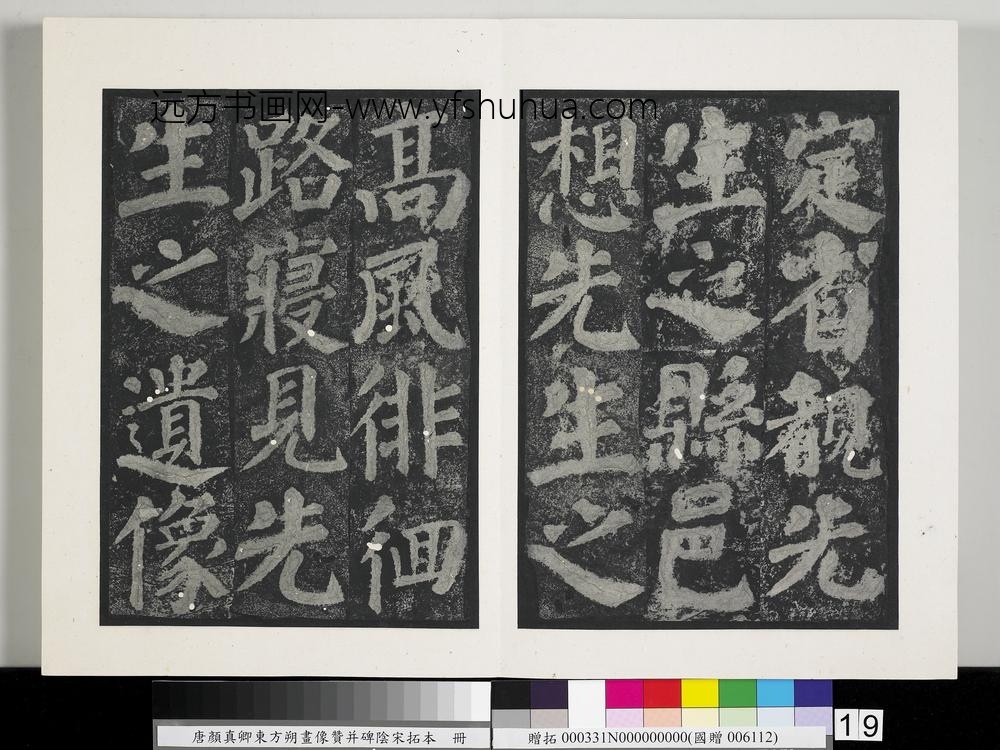 远方书画网-www.yfshuhua.com
定省覩先
生之縣邑
想先生之
高風徘徊
路寢見先
生之遺像
唐顏真卿東方朔畫像贊并碑陰宋拓本 冊
贈拓 000331N000000000(國贈 006112)
19